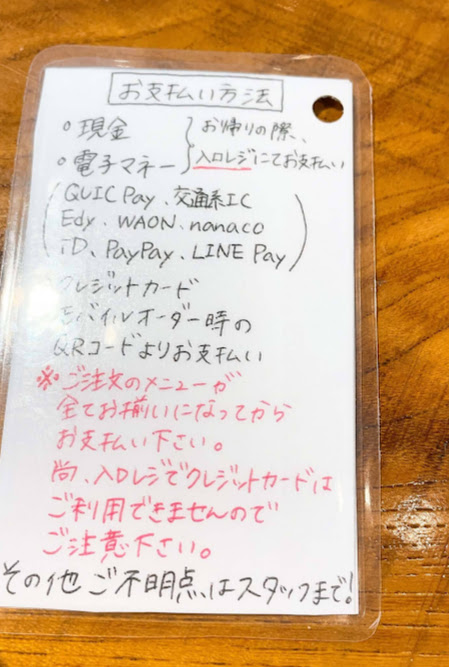 お支払い方法
○現金
○電子マネー
お帰りの際、
入口レジにてお支払い
(QUICPay、交通系IC
Edy、WAON、nanaco
iD、PayPay、LINE Pay)
クレジットカード
モバイルオーダー時の
QRコードよりお支払い
※ご注文のメニューが
全てお揃いになってから
お支払い下さい。
尚、入口レジでクレジットカードは
ご利用できませんので
ご注意下さい。
その他ご不明点はスタッフまで!